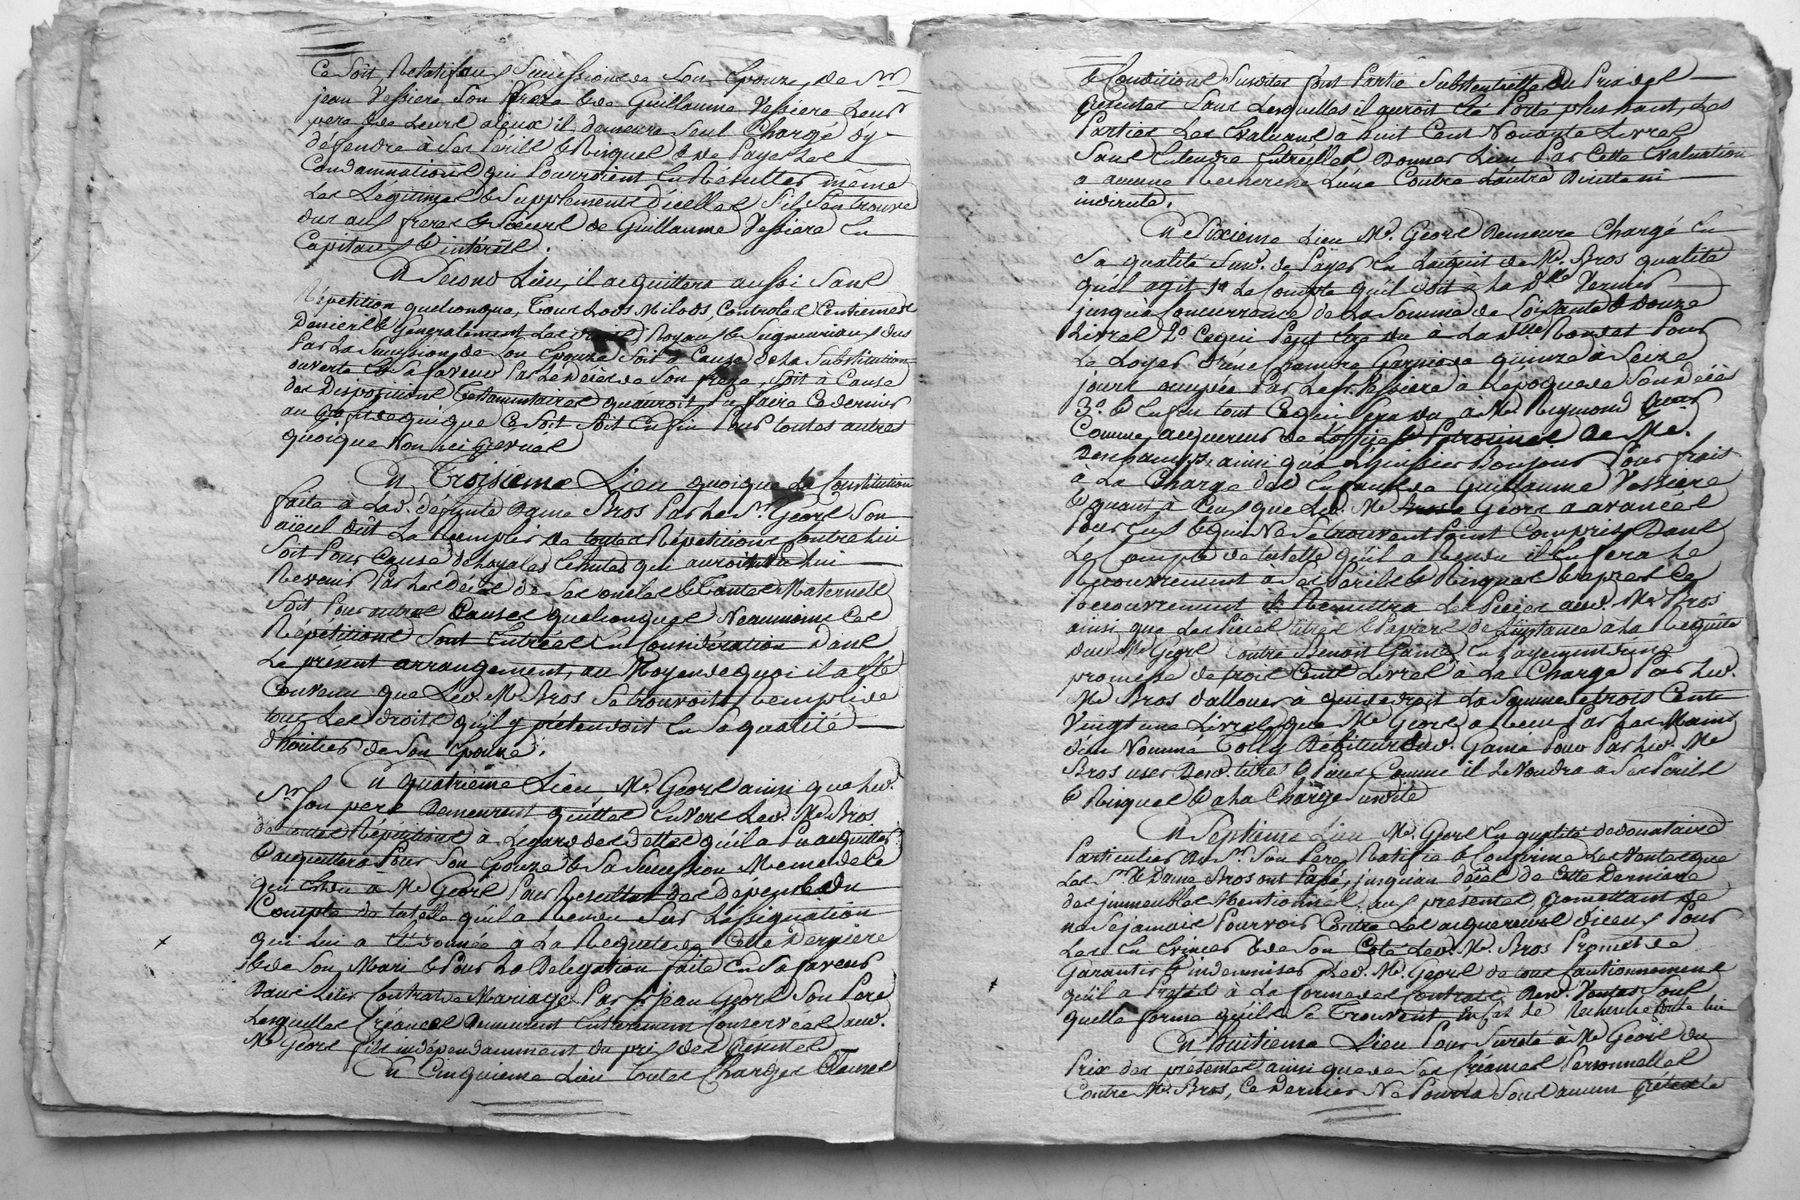 ce soit Relatif aux Successions de Son Epouze, de Mr
jean Vessiere Son frere & de Guillaume Vessiere Leur
pere & de Leurs aïeux il demeure Seul Chargé dy
défendre à Ses Périls & Risques & de Payer Les
Condamnations qui Pourroient En Résulter même
Les Légitimes & Supplements d'icelles S'il S'en trouve
dus aux freres & Soeurs de Guillaume Vessiere En
Capitaux & intérêts.
En Second Lieu, il acquittera aussi Sans
Répétition quelconque, Tous Lods Milods, Controles Centiemes
Deniers & Généralement Les droits Royaux & Seigneuriaux dus
Par La Succession de Son Epouze Soit à Cause de La Substitution
ouverte En Sa faveur Par Le Décès de Son frere, Soit à Cause
des Dispositions Testamentaires qu'auroit Pu faire Ce dernier
au Profit de qui que Ce Soit Soit Enfin Pour toutes autres
quoique Non ici Prevues
En Troisieme Lieu quoique La Constitution
faite à Lad. défunte Dame Bros Par Le Sr. Geors Son
aïeul dût La Remplir de toutes Répétitions Contre Lui
Soit Pour Cause de hoyales Echutes qui auroient Pu Lui
Revenir Par Les Décès de Ses oncles & Tantes Maternels
Soit Pour autres Causes quelconques Neanmoins Ces
Répétitions Sont Entrées En Considération Dans
Le présent arrangement, au Moyen de quoi il a Eté
Convenu que Led. Me Bros Se trouvoit Rempli de
tous Les droits qu'il y prétendoit En Sa qualité
d'héritier de Son Epouze.
En quatrième Lieu, Me. Geors ainsi que Led.
Sr. Son pere Demeurent quittes Envers Led. Me Bros
de toutes Répétitions à L'egard des Dettes qu'il a Pu acquitter
& acquittera Pour Son Epouze & Sa Succession Meme de Ce
qui Est du à Me Geors Pour Resultat des depenses du
Compte de tutelle qu'il a Rendu Sur L'assignation
qui Lui a Eté donnée à La Requete de Cette Derniere
& de Son Mari & Pour La Délegation faite En Sa faveur
Dans Leur Contrat de Mariage Par Sr jean Geors Son Pere
Lesquelles Créances Demeurent Entierement Conservées aud.
Me Geors fils indépendamment du prix des Présentes
En Cinquieme Lieu toutes Charges Clauses
& Conditions Susdites font Partie Substentielle Du Prix des
Présentes Sans Lesquelles il auroit Eté Porté plus haut, Les
Parties Les Evaluant à huit Cent Nonante Livres
Sans Entendre Entreelles Donner Lieu Par Cette Evaluation
a aucune Recherche L'une Contre L'autre Directe ni
indirecte.
En Sixieme Lieu Me. Geors Demeure Chargé En
Sa qualité Susd. de Payer En L'acquit de Me. Bros qualité
qu'il agit 1º Le Compte qu'il doit à La Dlle Vernier
jusqu'à Concurrence de La Somme de Soixante & Douze
Livres 2º Ce qui Peut Etre du a La Dlle Rondet Pour
Le Loyer d'une Chambre Garnie de quinze à Seize
jours occupée Par Le Sr. Vessiere à L'époque de Son décès
3º & Enfin tout Ce qui Sera du à Me. Reymond
Comme acquereur de L'office & Patrocines de Me.
Deschamps, ainsi qu'à L'huissier Bonjour Pour frais
à La Charge des Enfants de Guillaume Vessiere
& quant à Ceux que Led. Me Geors a avancés
Pour Eux & qui Ne Se trouvent Point Compris Dans
Le Compte de tutelle qu'il a Rendu il En fera Le
Recouvrement à Ses Périls & Risques & apres Ce
Recouvrement il Remettra Les Pieces aud. Me Bros
ainsi que Les Pieces titres & Papiers de L'instance à La Requête
dud. Me Geors Contre Benoit Gamé En Payement d'une
promesse de trois Cents Livres à La Charge Par Led.
Me Bros d'allouer à qui de droit La Somme de trois Cents
Vingt une Livres que Me Geors a Recu Par Les Mains
d'un Nommé Colly Débiteur dud. Gamé Pour Par Led. Me
Bros user Desd. titre & Pieces Comme il Le Voudra à Ses Périls
& Risques & a La Charge Susdite
En Septième Lieu Me Geors En qualité de donataire
Particulier du Sr. Son Pere, Ratifie & Confirme Les Ventes que
Les Sr & Dame Bros ont Passé, jusqu'au décès de Cette Derniere
des immeubles Mentionnés aux présentes, Promettant de
ne Se jamais Pourvoir Contre Les acquereurs d'iceux Pour
Les En Evincer & de Son Coté Led. Me. Bros Promet de
Garantir & indemniser Led. Me. Geors de tous Cautionnements
qu'il a Prêtés à La forme des Contrats Desd. Ventes Sous
quelle forme qu'ils Se Trouvent En fait de Recherche Contre lui
En Huitieme Lieu Pour Sureté à Me Geors du
Prix des présentes ainsi que de Ses Créances Personnelles
Contre Me. Bros, Ce Dernier Ne Pourra Sous aucun prétexte